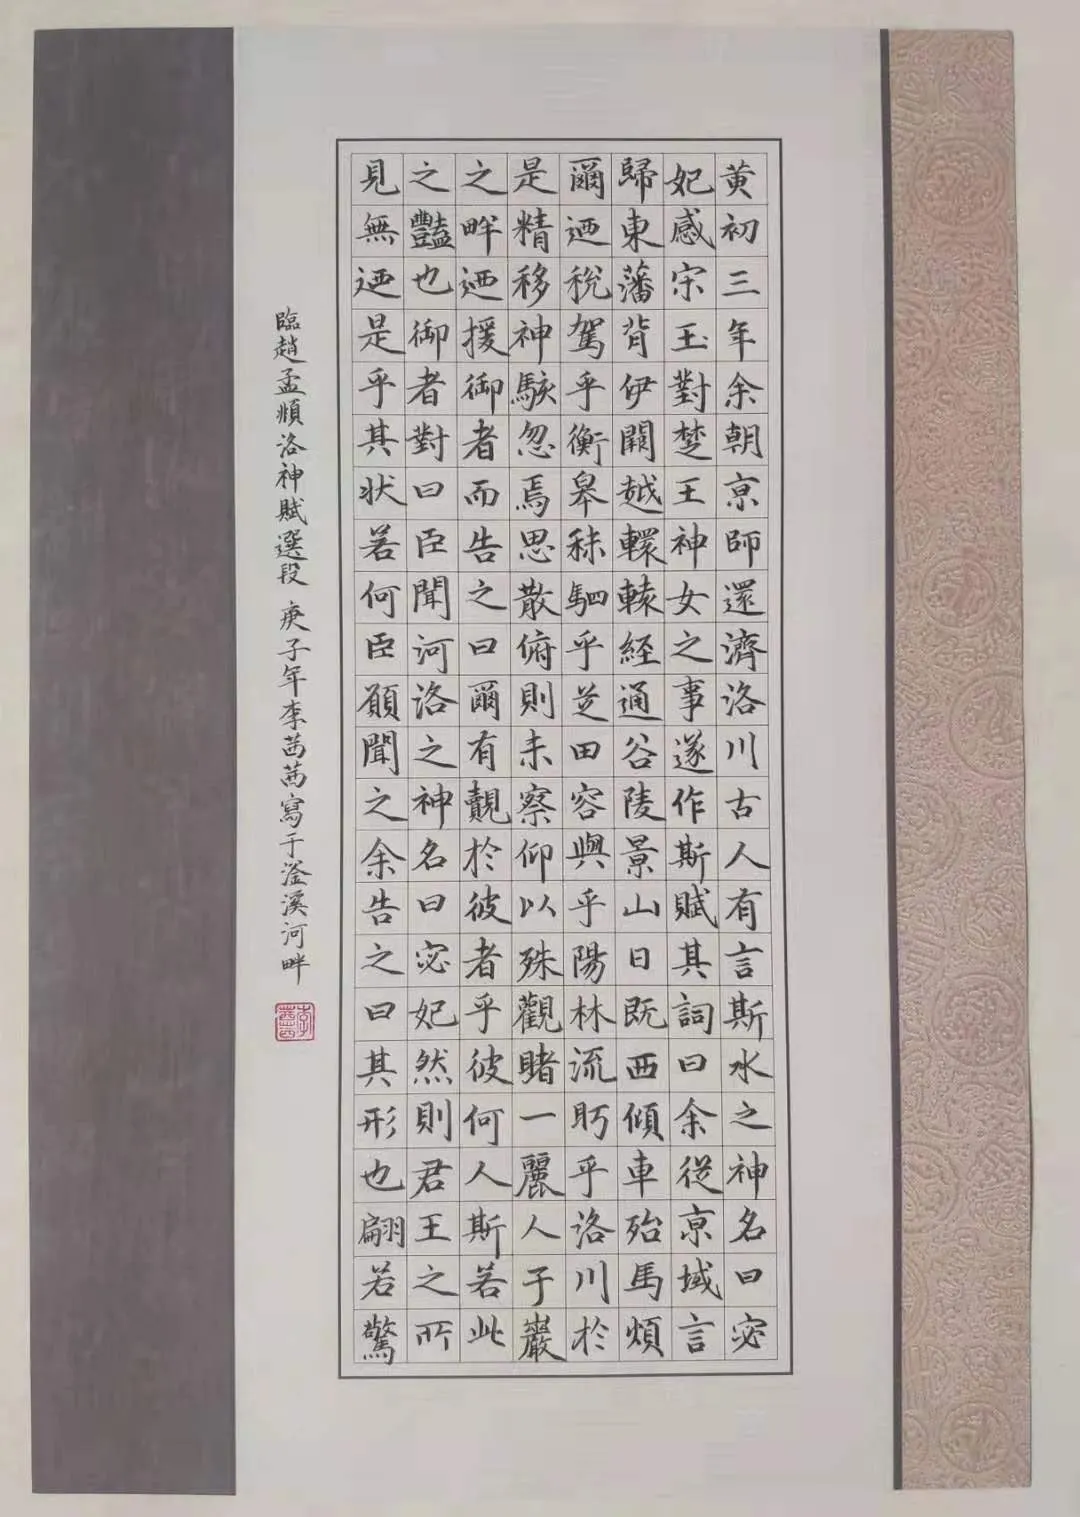 黄初三年余朝京師還濟洛川古人有言斯水之神名曰宓
妃感宋玉對楚王神女之事遂作斯賦其詞曰余從京域言
歸東藩背伊闕越轘轅經通谷陵景山日既西傾車殆馬煩
爾迺稅駕乎蘅皋秣駟乎芝田容與乎陽林流眄乎洛川於
是精移神駭忽焉思散俯則未察仰以殊觀睹一麗人于巖
之畔迺援御者而告之曰爾有覿於彼者乎彼何人斯若此
之豔也御者對曰臣聞河洛之神名曰宓妃然則君王之所
見無迺是乎其狀若何臣願聞之余告之曰其形也翩若驚
臨趙孟頫洛神賦選段 庚子年李茜茜寫于滏溪河畔
李茜茜